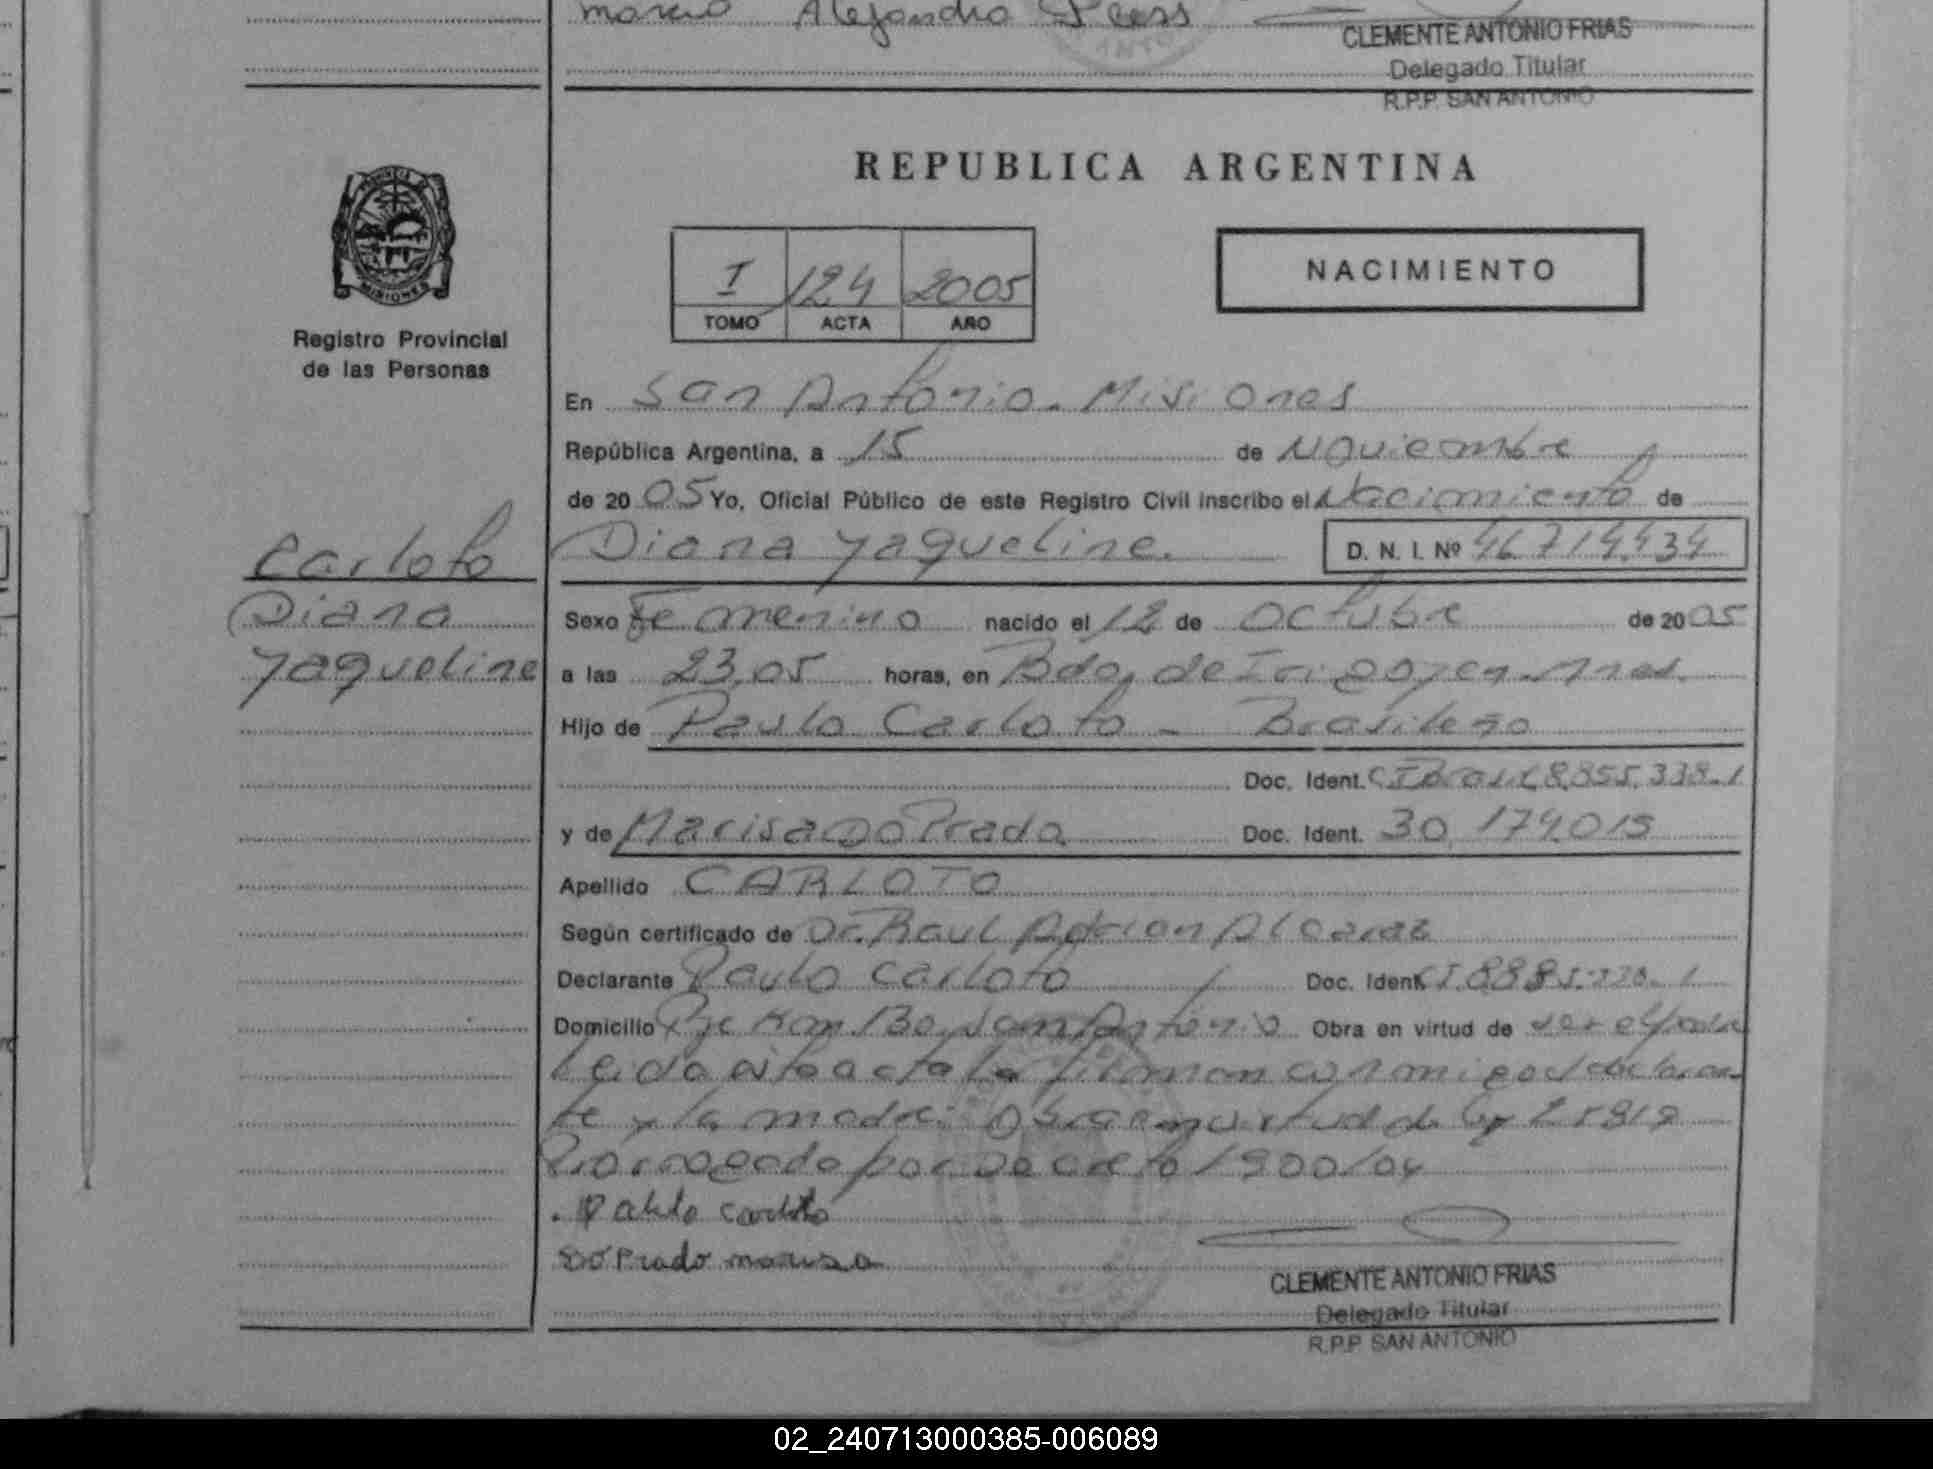 Alejandro
CLEMENTE ANTONIO FRIAS
Delegado Titular
R.P.P. SAN ANTONIO
REPUBLICA ARGENTINA
PROVINCIA DE
MISIONES
Registro Provincial
de las Personas
I 124 2005
TOMO ACTA AÑO
NACIMIENTO
En San Antonio - Misiones
República Argentina, a 15 de Noviembre
de 20 05 Yo, Oficial Público de este Registro Civil inscribo el Nacimiento de
Diana Yaqueline. D. N. I. Nº 46.714.434
Carloto
Diana
Yaqueline
Sexo Femenino nacido el 12 de Octubre de 20 05
a las 23,05 horas, en Bdo, de Irigoyen - Mnes.
Hijo de Paulo Carloto - Brasileño
Doc. Ident. CI Brasil 8.855.338-1
y de Marisa Do Prado Doc. Ident. 30.174.015
Apellido CARLOTO
Según certificado de Dr. Raul Adrian Alcaraz
Declarante Paulo Carloto Doc. Ident. CI
Domicilio Pje San Antonio Obra en virtud de ser el padre
Leida esta acta la firman conmigo el declaran-
te y la madre: Obra en virtud de ley 25819
Prorrogada por Decreto 1900/04
Carloto
Do Prado marisa
CLEMENTE ANTONIO FRIAS
Delegado Titular
R.P.P. SAN ANTONIO
02_240713000385-006089